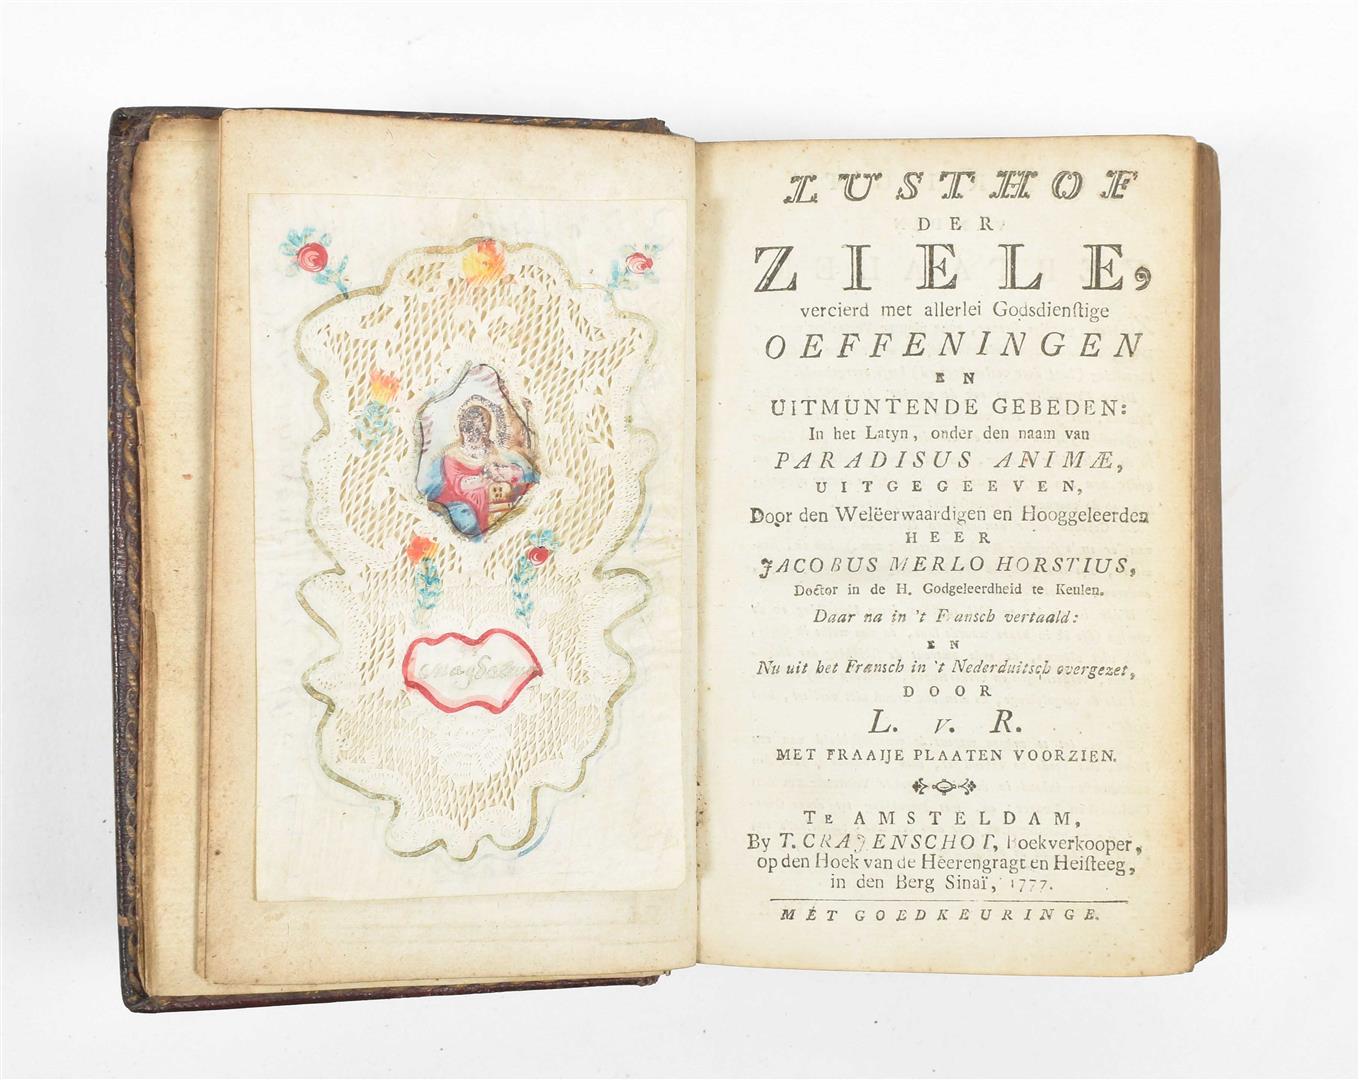 LUSTHOF
DER
ZIELE,
vercierd met allerlei Godsdienſtige
OEFFENINGEN
EN
UITMUNTENDE GEBEDEN:
In het Latyn, onder den naam van
PARADISUS ANIMÆ,
UITGEGEEVEN,
Door den Weleerwaardigen en Hooggeleerden
HEER
JACOBUS MERLO HORSTIUS,
Doctor in de H. Godgeleerdheid te Keulen.
Daar na in 't Fransch vertaald:
EN
Nu uit het Fransch in 't Nederduitsch overgezet,
DOOR
L. v. R.
MET FRAAIJE PLAATEN VOORZIEN.
TE AMSTELDAM,
By T. CRAJENSCHOT, Boekverkooper,
op den Hoek van de Heerengragt en Heiſteeg,
in den Berg Sinaï, 1777.
MET GOEDKEURINGE.